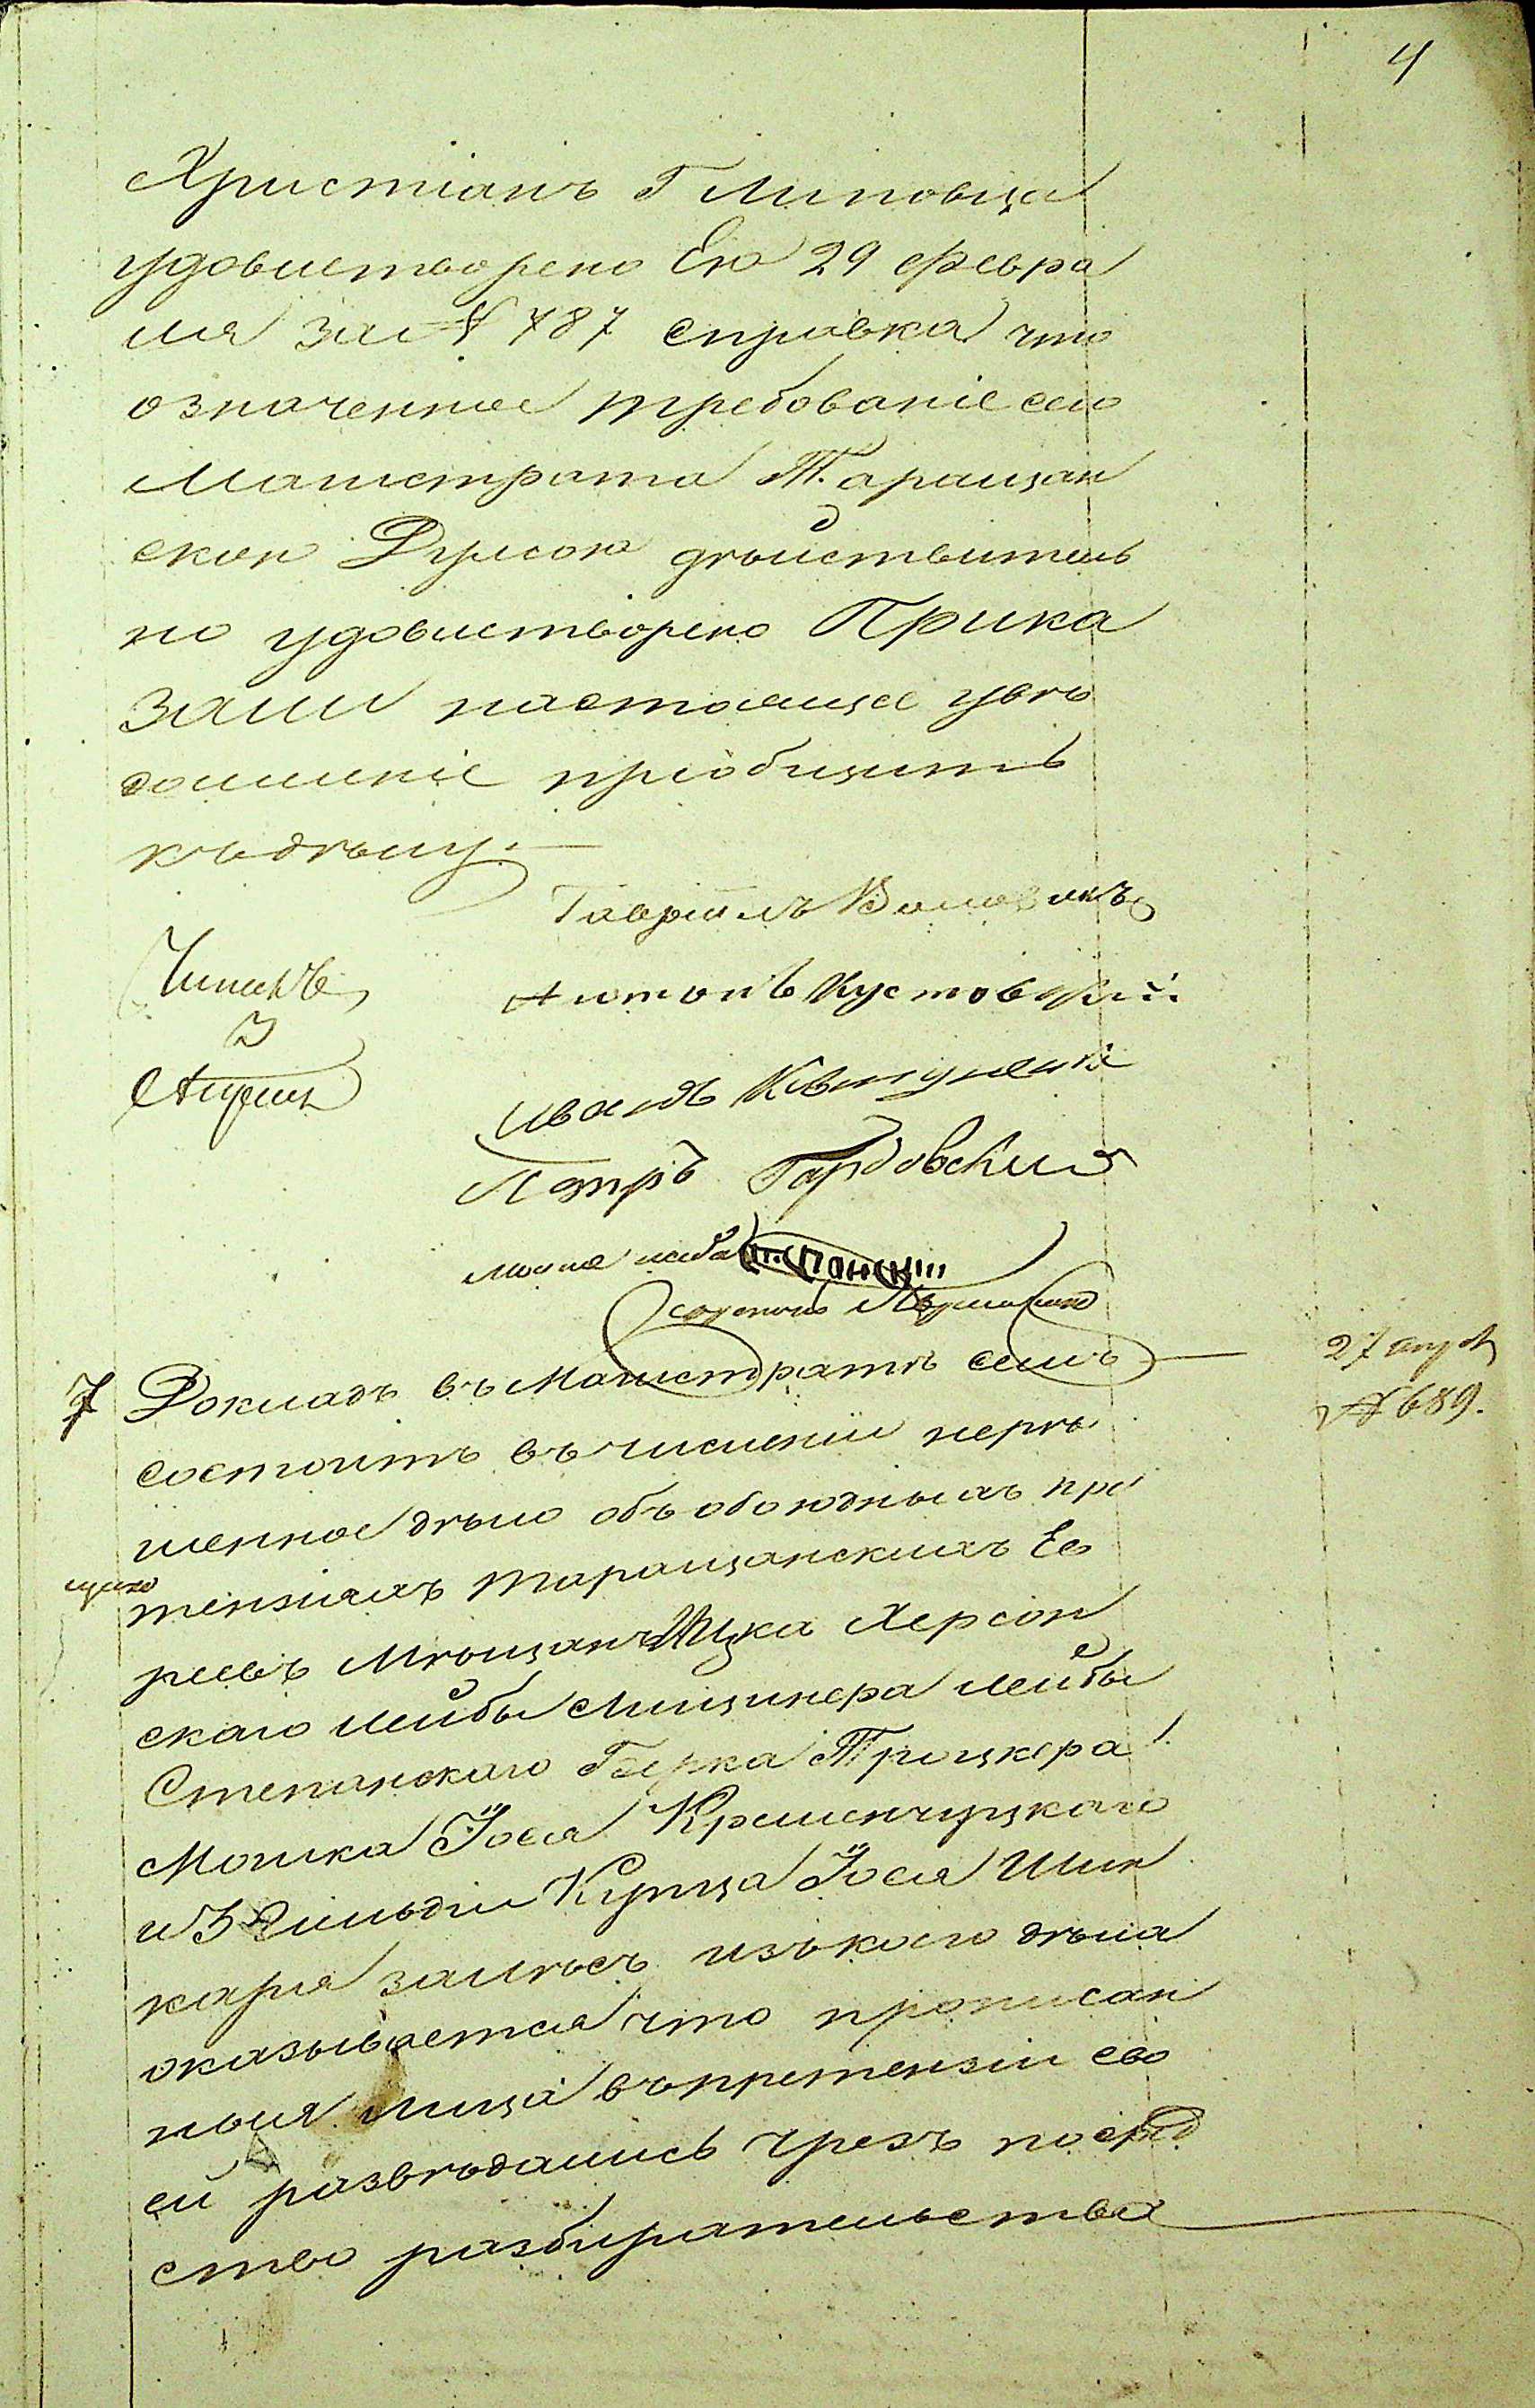 4
Христіанъ Г Липовца
удовлетворено Ею 29 Февра
ля за № 787 справка что
означенное требованіе сего
Магистрата Таращан
скою Думою дѣйствитель
но удовлетворено Прика
зали настоящее увѣ
домленіе пріобщить
къ дѣлу.
Гавріилъ
Антонъ Кустовскій
Иванъ
Петръ Гардовскій
7 Докладъ въ Магистратѣ семъ
27 апр
№ 689.
состоитъ въ численіи нерѣ
шенное дѣло объ обоюдныхъ пре
тензіяхъ таращанскихъ Ев
реевъ Мѣщанъ Ицка Херсон
скаго Лейбы Лищинера Лейбы
Степанскаго Берка Троцкера
Мошка Іося Кременчуцкаго
и 3 Гильдіи Купца Іося Шин
каря заимѣсъ изъ коего дѣла
оказывается что прописан
ныя лица въ претензіи сво
ей развѣдались чрезъ посред
ство разбирательства